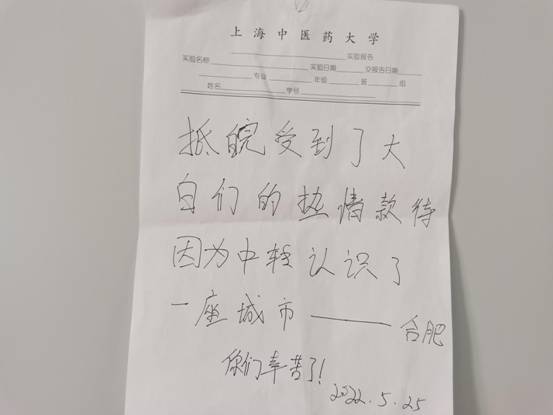 上海中医药大学
实验报告
实验名称 实验日期 交报告日期
专业 年级 班 组
姓名 学号
抵皖受到了大
白们的热情款待
因为中转认识了
一座城市——合肥
你们辛苦了!
2022.5.25